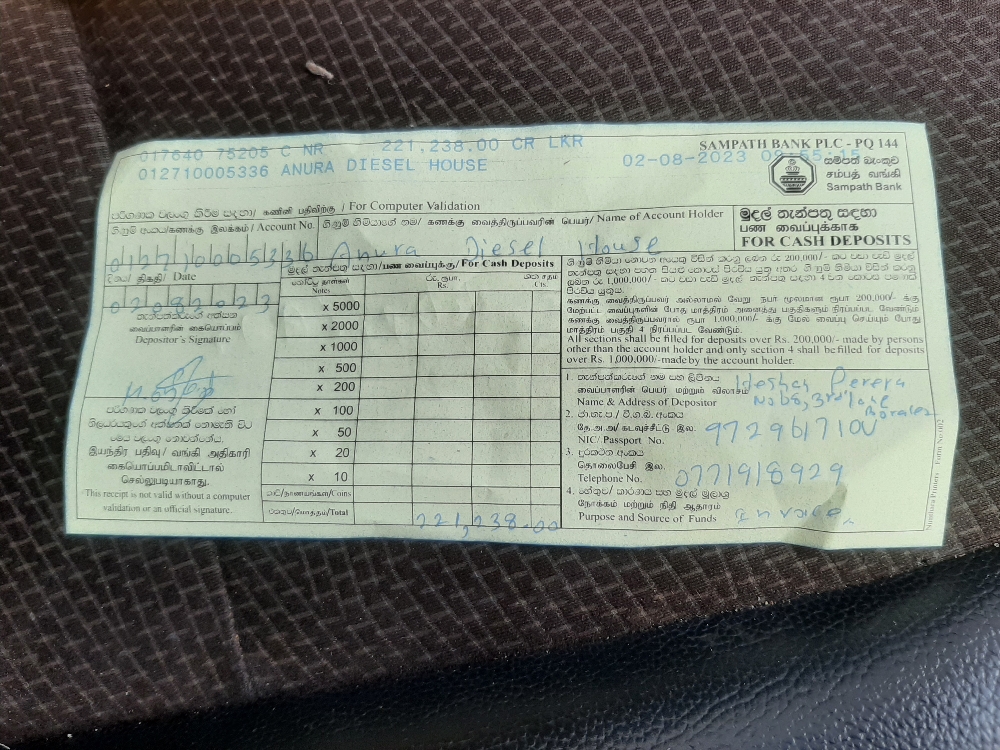 017640 75205 C NR 221,238.00 CR LKR
012710005336 ANURA DIESEL HOUSE
02-08-2023 09:55:15
SAMPATH BANK PLC - PQ 144
සම්පත් බැංකුව
சம்பத் வங்கி
Sampath Bank
பரිගණක වලංගු කිරීම සඳහා / கணினி பதிவிற்கு / For Computer Validation
ගිණුම් අංකය/கணக்கு இலக்கம்/ Account No.
ගිණුම් හිමියාගේ නම/ கணக்கு வைத்திருப்பவரின் பெயர்/ Name of Account Holder
012710005336 Anura Diesel House
මුදල් තැන්පතු සඳහා
பண வைப்புக்காக
FOR CASH DEPOSITS
දිනය/ திகதி/ Date
02082023
මුදල් තැන්පතු සඳහා/பண வைப்புக்கு/ For Cash Deposits
Notes
රු. ரூபா. Rs.
ශත சதம் Cts.
x 5000
x 2000
x 1000
x 500
x 200
x 100
x 50
x 20
x 10
කාසි/நாணயங்கள்/Coins
එකතුව/மொத்தம்/Total
221,238.00
තැන්පත්කරුගේ අත්සන
வைப்பாளரின் கையொப்பம்
Depositor's Signature
පරිගණක වලංගු කිරීමක් හෝ
නිලධරයකුගේ අත්සනක් නොමැති විට
මෙය වලංගු නොවන්නේය.
இயந்திர பதிவு/ வங்கி அதிகாரி
கையொப்பமிடாவிட்டால்
செல்லுபடியாகாது.
This receipt is not valid without a computer
validation or an official signature.
கணக்கு வைத்திருப்பவர் அல்லாமல் வேறு நபர் மூலமான ரூபா 200,000/- க்கு
மேற்பட்ட வைப்புகளின் போது மாத்திரம் அனைத்து பகுதிகளும் நிரப்பப்பட வேண்டும்
கணக்கு வைத்திருப்பவரால் ரூபா 1,000,000/- க்கு மேல் வைப்பு செய்யும் போது
மாத்திரம் பகுதி 4 நிரப்பப்பட வேண்டும்.
All sections shall be filled for deposits over Rs. 200,000/- made by persons
other than the account holder and only section 4 shall be filled for deposits
over Rs. 1,000,000/-made by the account holder.
1. තැන්පත්කරුගේ නම සහ ලිපිනය
வைப்பாளரின் பெயர் மற்றும் விலாசம்
Name & Address of Depositor
Heshan Perera
No 68, 3rd lane
Borales
2. ජා.හැ.ප./ වි.ග.බ. අංකය
தே.அ.அ/ கடவுச்சீட்டு இல.
NIC/ Passport No.
972961710V
3. දුරකථන අංකය
தொலைபேசி இல.
Telephone No.
0771918929
4. හේතුව/ කාරණය සහ මුදල් මූලාශ්‍ර
நோக்கம் மற்றும் நிதி ஆதாரம்
Purpose and Source of Funds
Invoice